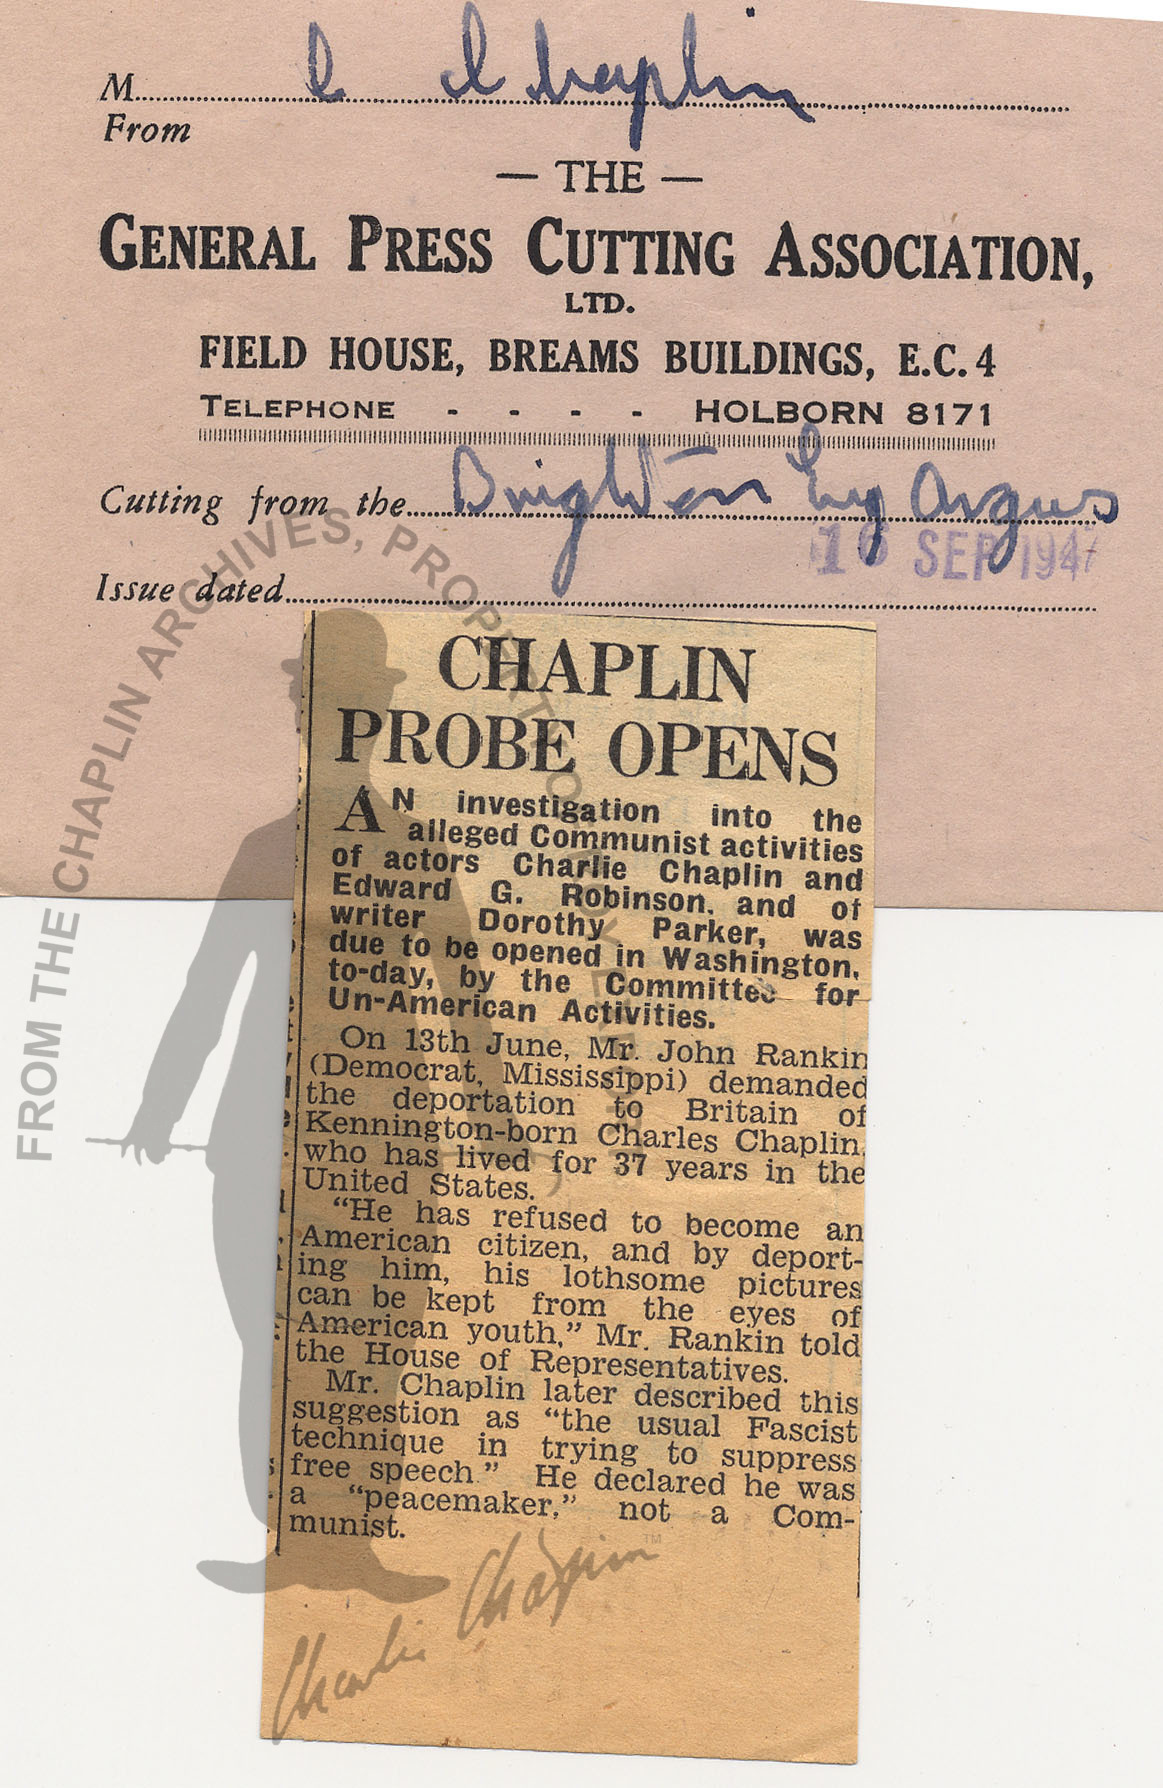 M.............C Chaplin.............
From
— THE —
GENERAL PRESS CUTTING ASSOCIATION,
LTD.
FIELD HOUSE, BREAMS BUILDINGS, E.C.4
TELEPHONE - - - - HOLBORN 8171
Cutting from the...Brighton Argus
16 SEP 1947
Issue dated...
CHAPLIN
PROBE OPENS
AN investigation into the
alleged Communist activities
of actors Charlie Chaplin and
Edward G. Robinson, and of
writer Dorothy Parker, was
due to be opened in Washington,
to-day, by the Committee for
Un-American Activities.
On 13th June, Mr. John Rankin
(Democrat, Mississippi) demanded
the deportation to Britain of
Kennington-born Charles Chaplin,
who has lived for 37 years in the
United States.
“He has refused to become an
American citizen, and by deport-
ing him, his lothsome pictures
can be kept from the eyes of
American youth,” Mr. Rankin told
the House of Representatives.
Mr. Chaplin later described this
suggestion as “the usual Fascist
technique in trying to suppress
free speech.” He declared he was
a “peacemaker,” not a Com-
munist.
Charlie Chaplin ™
FROM THE CHAPLIN ARCHIVES, PROPERTY OF ROY EXPORT